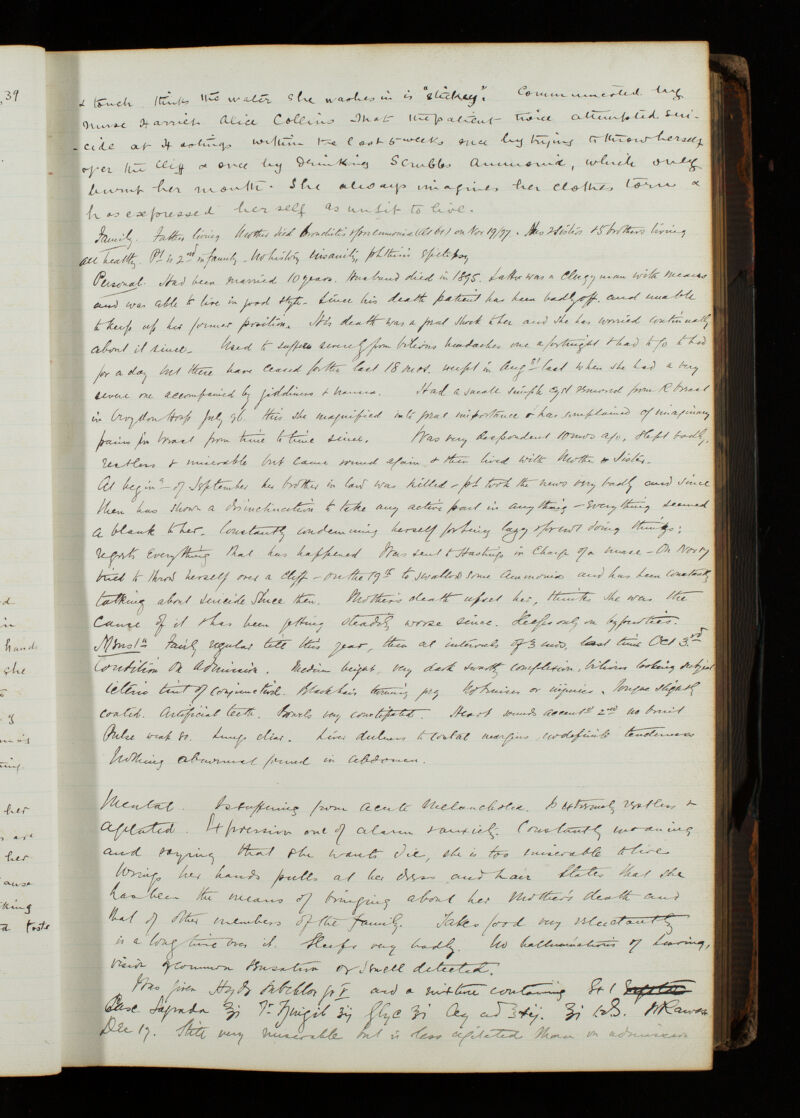 39
& touch thinks the water she washes in is "stickey". Communicated by
nurse Harriet Alice Collins that the patient twice attempted sui-
-cide at Hastings within the last 5 weeks once by trying to throw herself
over the cliff & once by drinking Scrubbs Ammonia, which only
burnt her mouth. She always imagines her clothes torn &
has expressed her self as unfit to live.
Family. Father living Mother died Bronchitis & pneumonia on Nov 19/97. Has 2 sisters & 5 brothers living
all healthy. Pt is 2nd in family. No history insanity, phthisis Epilepsy
Personal. Had been married 10 years. Husband died in 1895. Latter was a Clergyman with means
and was able to live in good style. Since his death patient has been badly off and unable
to keep up her former position. His death was a great shock to her and she has worried continually
about it since. Used to suffer severely from bilious headaches one a fortnight & had to go to bed
for a day but these have ceased for the last 18 mos. except in Augst last when she had a very
severe one accompanied by giddiness & nausea. Had a small simple cyst removed from R breast
in Croydon Hosp July 96 this she magnified into great importance & has complained of imaginary
pains in breast from time to time since. Was very despondent 10 mos ago, slept badly,
restless & miserable but came round again & then lived with Mother & Sister.
At begin- of September her brother in law was killed - pt took the news very badly and since
then has shown a disinclination to take any active part in anything - Everything seemed
a blank to her. Constantly condemning herself for being lazy & for not doing things;
regrets Everything that has happened Was sent to Hastings in charge of a nurse - On Nov 17
tried to throw herself over a cliff - on the 19th to swallow some Ammonia and has been constantly
talking about suicide since then. Mother's death upset her, thinks she was the
cause of it & has been getting steadily worse since. Sleeps only on hypnotics.
Menstn Fairly regular till this year, then at intervals of 3 mos, last time Oct 3rd
Condition on Admission. Medium height, very dark swarthy complexion, bilious looking subject
icteric tint of conjunctivæ. Black hair turning grey No bruises or injuries. Tongue slightly
coated. Artificial teeth. Bowels very constipated. Heart sounds accentd 2nd no bruit
Pulse weak 80. Lungs clear. Liver dulness to costal margins no definite tenderness
Nothing abnormal found in abdomen.
Mental. Is suffering from acute Melancholia. Is extremely restless &
agitated. Expression one of alarm & anxiety. Constantly moaning
and saying that she wants die, she is too miserable to live
Wrings her hands pulls at her dress and hair States that she
has been the means of bringing about her Mother's death and
that of other members of the family. Takes food very reluctantly
is a long time over it. Sleeps very badly. No hallucinations of hearing,
vision & common sensation or smell detected.
Was given Hyd Subchlor gr V and a mixture containing Ext
Casc Sagrada Zingib Glyc Aq ad
Dec 17. Still very miserable but is less agitated than on admission
hands
she
her
are
her
cause